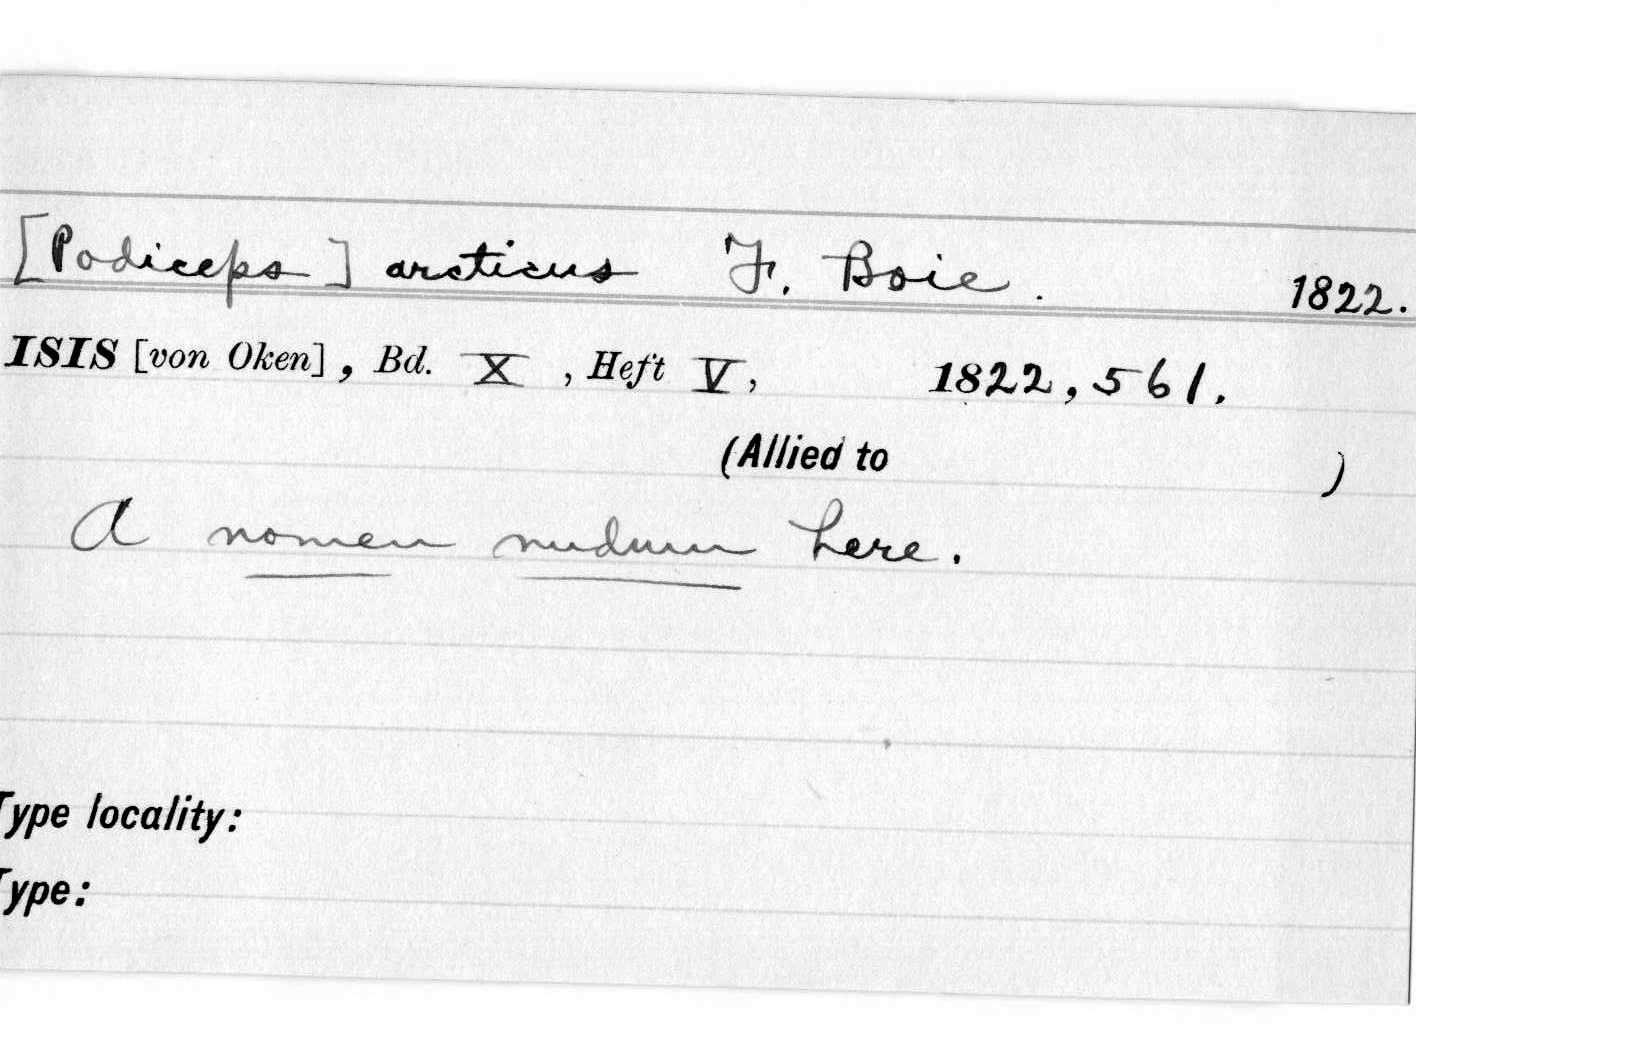 [Podiceps] arcticus F. Boie. 1822.
ISIS [von Oken], Bd. X, Heft V, 1822, 561.
(Allied to )
A nomen nudum here.
Type locality:
Type: